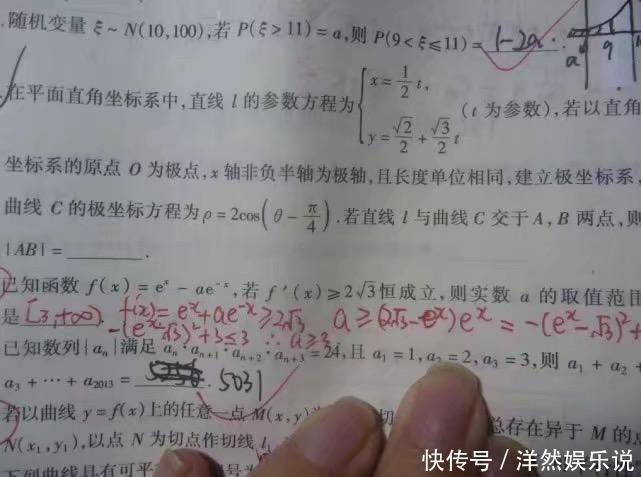 .随机变量 ξ ~ N(10,100),若 P(ξ > 11) = a,则 P(9 < ξ ≤ 11) = 1-2a .
a 9
在平面直角坐标系中,直线 l 的参数方程为 { x = 1/2 t, y = √2/2 + √3/2 t (t 为参数),若以直角
坐标系的原点 O 为极点,x 轴非负半轴为极轴,且长度单位相同,建立极坐标系,
曲线 C 的极坐标方程为 ρ = 2cos(θ - π/4).若直线 l 与曲线 C 交于 A, B 两点,则
|AB| = ______.
已知函数 f(x) = e^x - ae^-x,若 f'(x) ≥ 2√3 恒成立,则实数 a 的取值范围
是 [3,+∞). f(x)= e^x+ae^-x ≥2√3 a ≥(2√3-e^x)e^x = -(e^x-√3)²+
-(e^x-√3)²+3≤3 ∴a≥3
已知数列{a_n}满足 a_n·a_n+1·a_n+2·a_n+3 = 24,且 a_1 = 1, a_2 = 2, a_3 = 3,则 a_1 + a_2 +
a_3 + ··· + a_2013 = . 5031
若以曲线 y = f(x)上的任意一点 M(x,y) 切 总存在异于 M 的点
N(x_1,y_1),以点 N 为切点作切线 l_1
下列曲线具有可平
快传号 / 洋然娱乐说